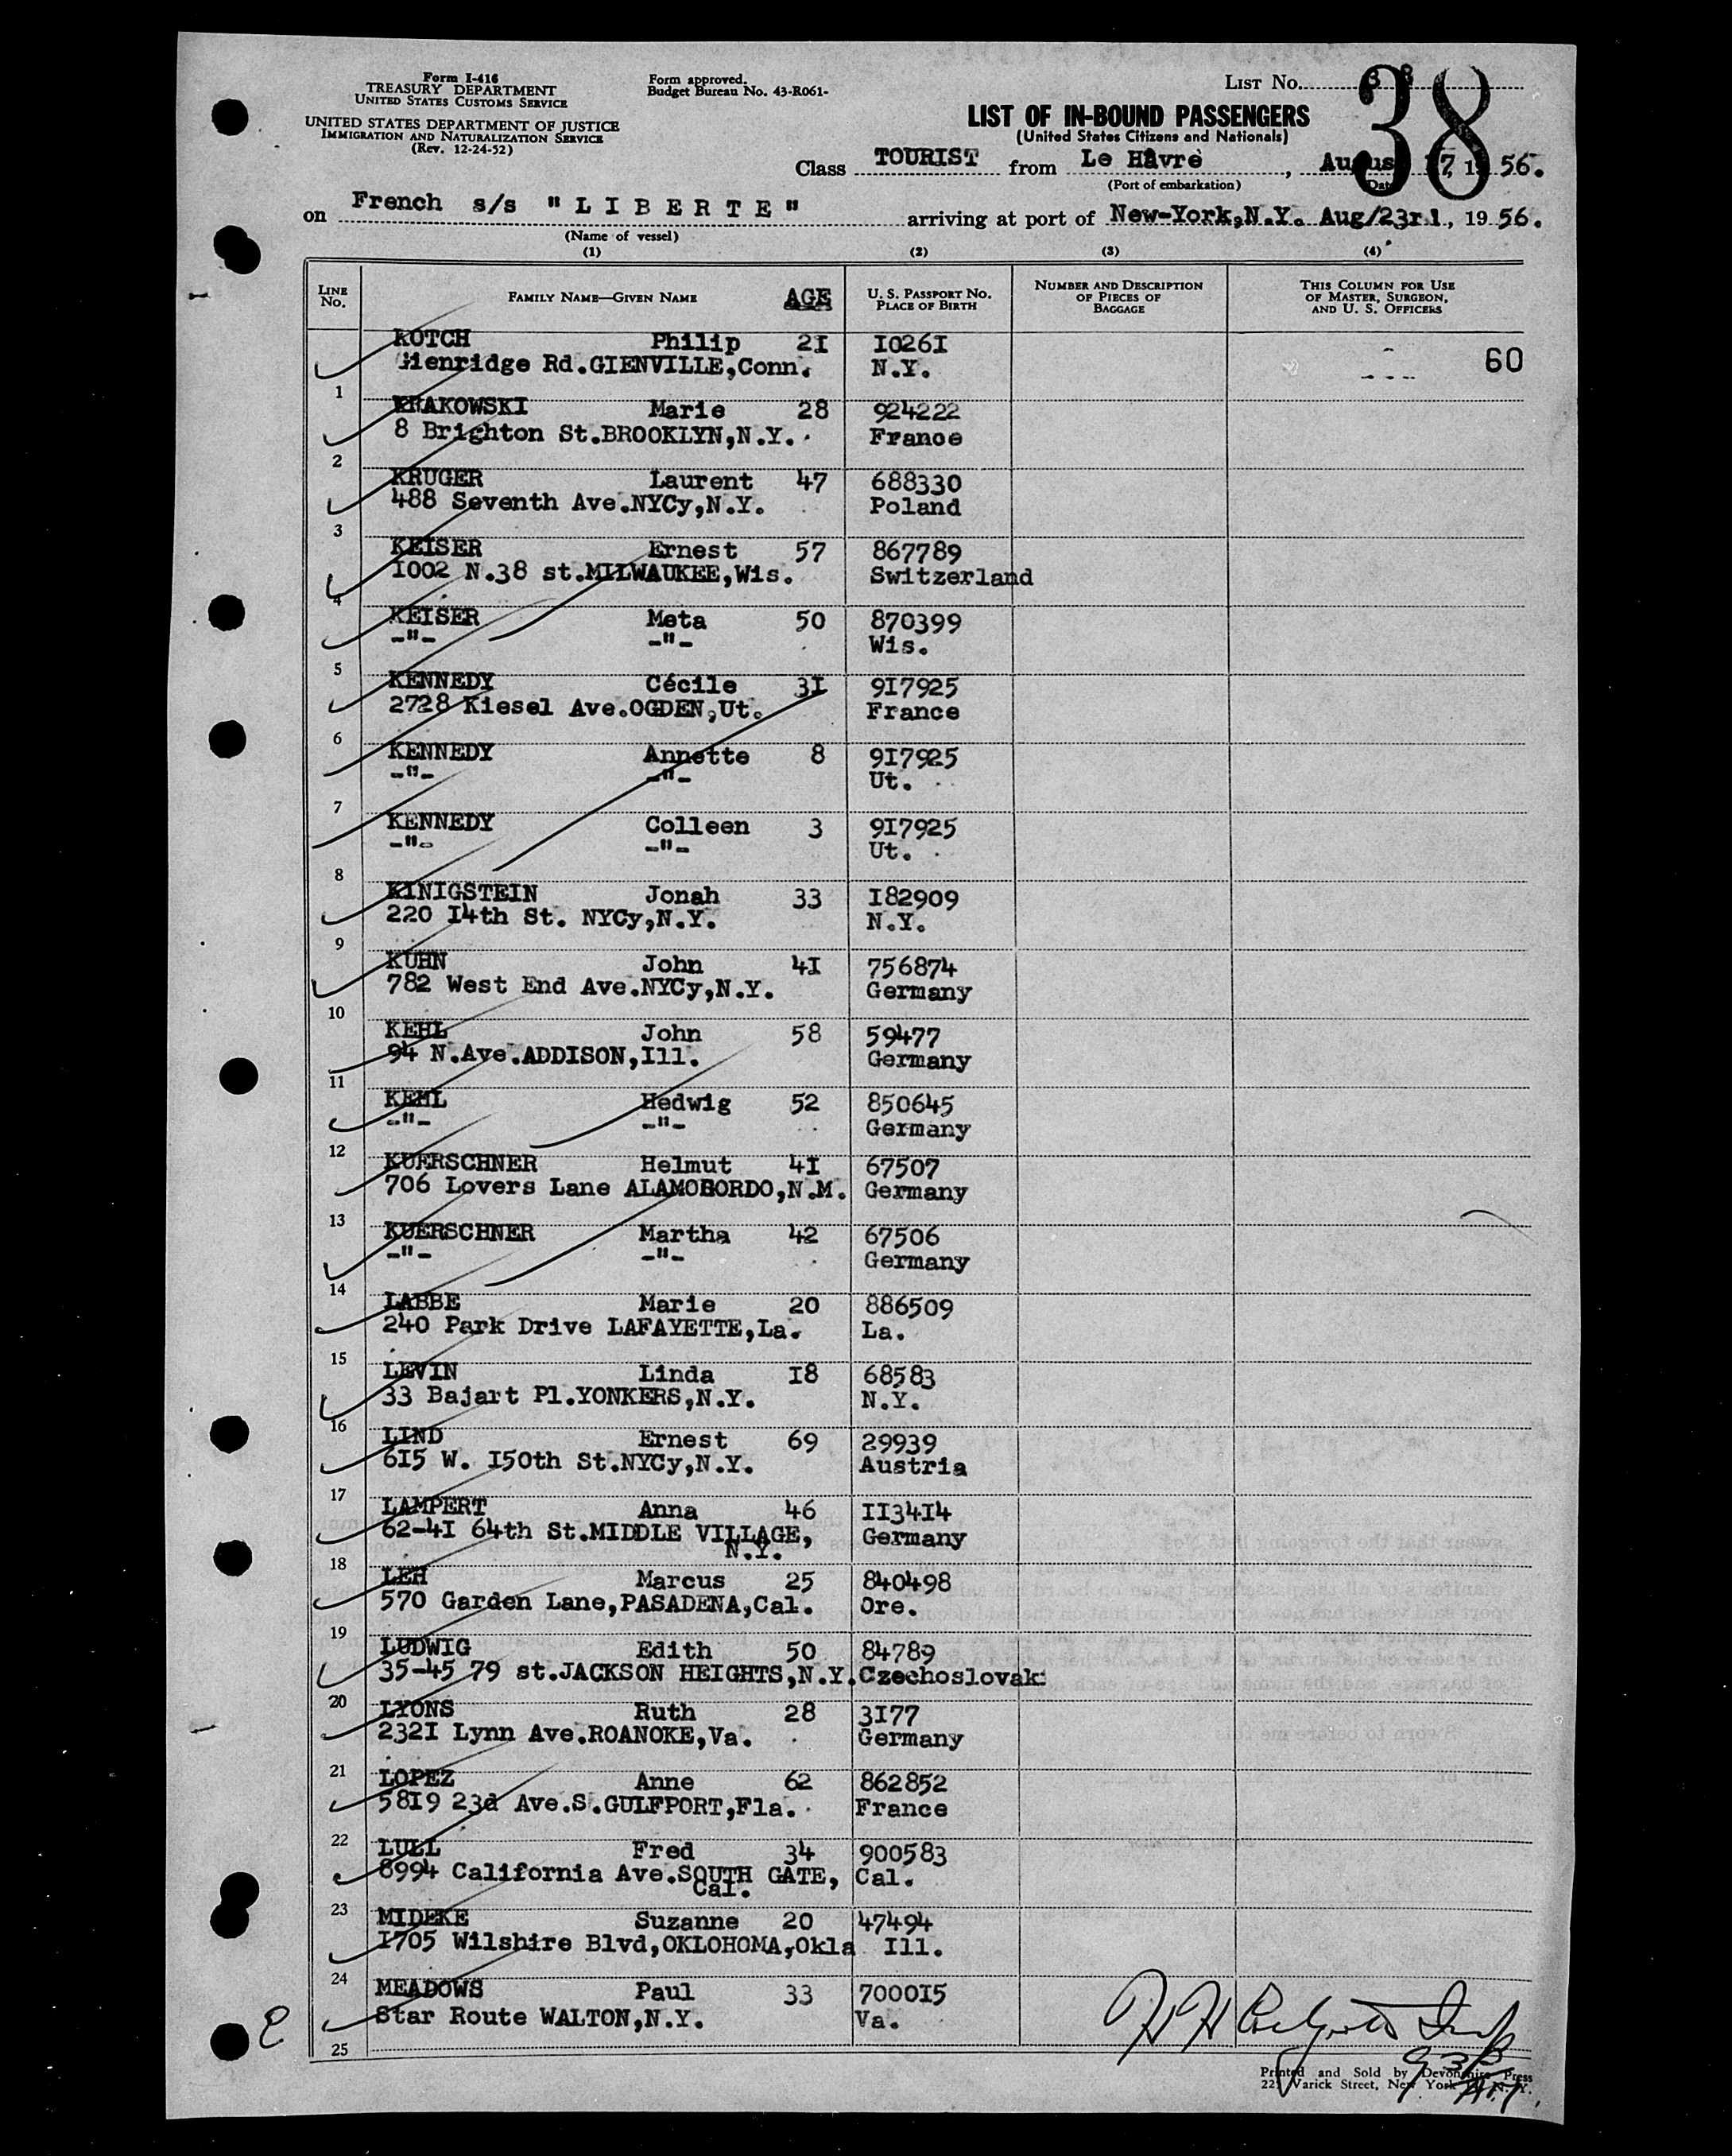 Form I-416
TREASURY DEPARTMENT
UNITED STATES CUSTOMS SERVICE
UNITED STATES DEPARTMENT OF JUSTICE
IMMIGRATION AND NATURALIZATION SERVICE
(Rev. 12-24-52)
Form approved.
Budget Bureau No. 43-R061-
LIST No. 38
38
LIST OF IN-BOUND PASSENGERS
(United States Citizens and Nationals)
Class TOURIST from Le Hâvre, August 17, 1956.
(Port of embarkation) (Date)
on French s/s "LIBERTE" arriving at port of New-York,N.Y. Aug/23rd, 1956.
(Name of vessel)
(1) (2) (3) (4)
LINE No. FAMILY NAME—GIVEN NAME AGE U. S. PASSPORT No. PLACE OF BIRTH NUMBER AND DESCRIPTION OF PIECES OF BAGGAGE THIS COLUMN FOR USE OF MASTER, SURGEON, AND U. S. OFFICERS
KOTCH Philip 2I I026I 60
Glenridge Rd.GIENVILLE,Conn. N.Y.
1
KRAKOWSKI Marie 28 924222
8 Brighton St.BROOKLYN,N.Y. France
2
KRUGER Laurent 47 688330
488 Seventh Ave.NYCy,N.Y. Poland
3
KEISER Ernest 57 867789
I002 N.38 st.MILWAUKEE,Wis. Switzerland
4
KEISER Meta 50 870399
-"- -"- Wis.
5
KENNEDY Cécile 3I 9I7925
2728 Kiesel Ave.OGDEN,Ut. France
6
KENNEDY Annette 8 9I7925
-"- -"- Ut.
7
KENNEDY Colleen 3 9I7925
-"- -"- Ut.
8
KINIGSTEIN Jonah 33 I82909
220 I4th St. NYCy,N.Y. N.Y.
9
KUHN John 4I 756874
782 West End Ave.NYCy,N.Y. Germany
10
KEHL John 58 59477
94 N.Ave.ADDISON,Ill. Germany
11
KEHL Hedwig 52 850645
-"- -"- Germany
12
KUERSCHNER Helmut 4I 67507
706 Lovers Lane ALAMOGORDO,N.M. Germany
13
KUERSCHNER Martha 42 67506
-"- -"- Germany
14
LABBE Marie 20 886509
240 Park Drive LAFAYETTE,La. La.
15
LEVIN Linda I8 68583
33 Bajart Pl.YONKERS,N.Y. N.Y.
16
LIND Ernest 69 29939
6I5 W. I50th St.NYCy,N.Y. Austria
17
LAMPERT Anna 46 II34I4
62-4I 64th St.MIDDLE VILLAGE, Germany
N.Y.
18
LEH Marcus 25 840498
570 Garden Lane,PASADENA,Cal. Ore.
19
LUDWIG Edith 50 84789
35-45 79 st.JACKSON HEIGHTS,N.Y. Czechoslovak
20
LYONS Ruth 28 3I77
232I Lynn Ave.ROANOKE,Va. Germany
21
LOPEZ Anne 62 862852
58I9 23d Ave.S.GULFPORT,Fla. France
22
LULL Fred 34 900583
8994 California Ave.SOUTH GATE, Cal.
Cal.
23
MIDEKE Suzanne 20 47494
I705 Wilshire Blvd,OKLOHOMA,Okla Ill.
24
MEADOWS Paul 33 7000I5
Star Route WALTON,N.Y. Va.
25
Printed and Sold by Devonshire Press
225 Varick Street, New York N. Y.